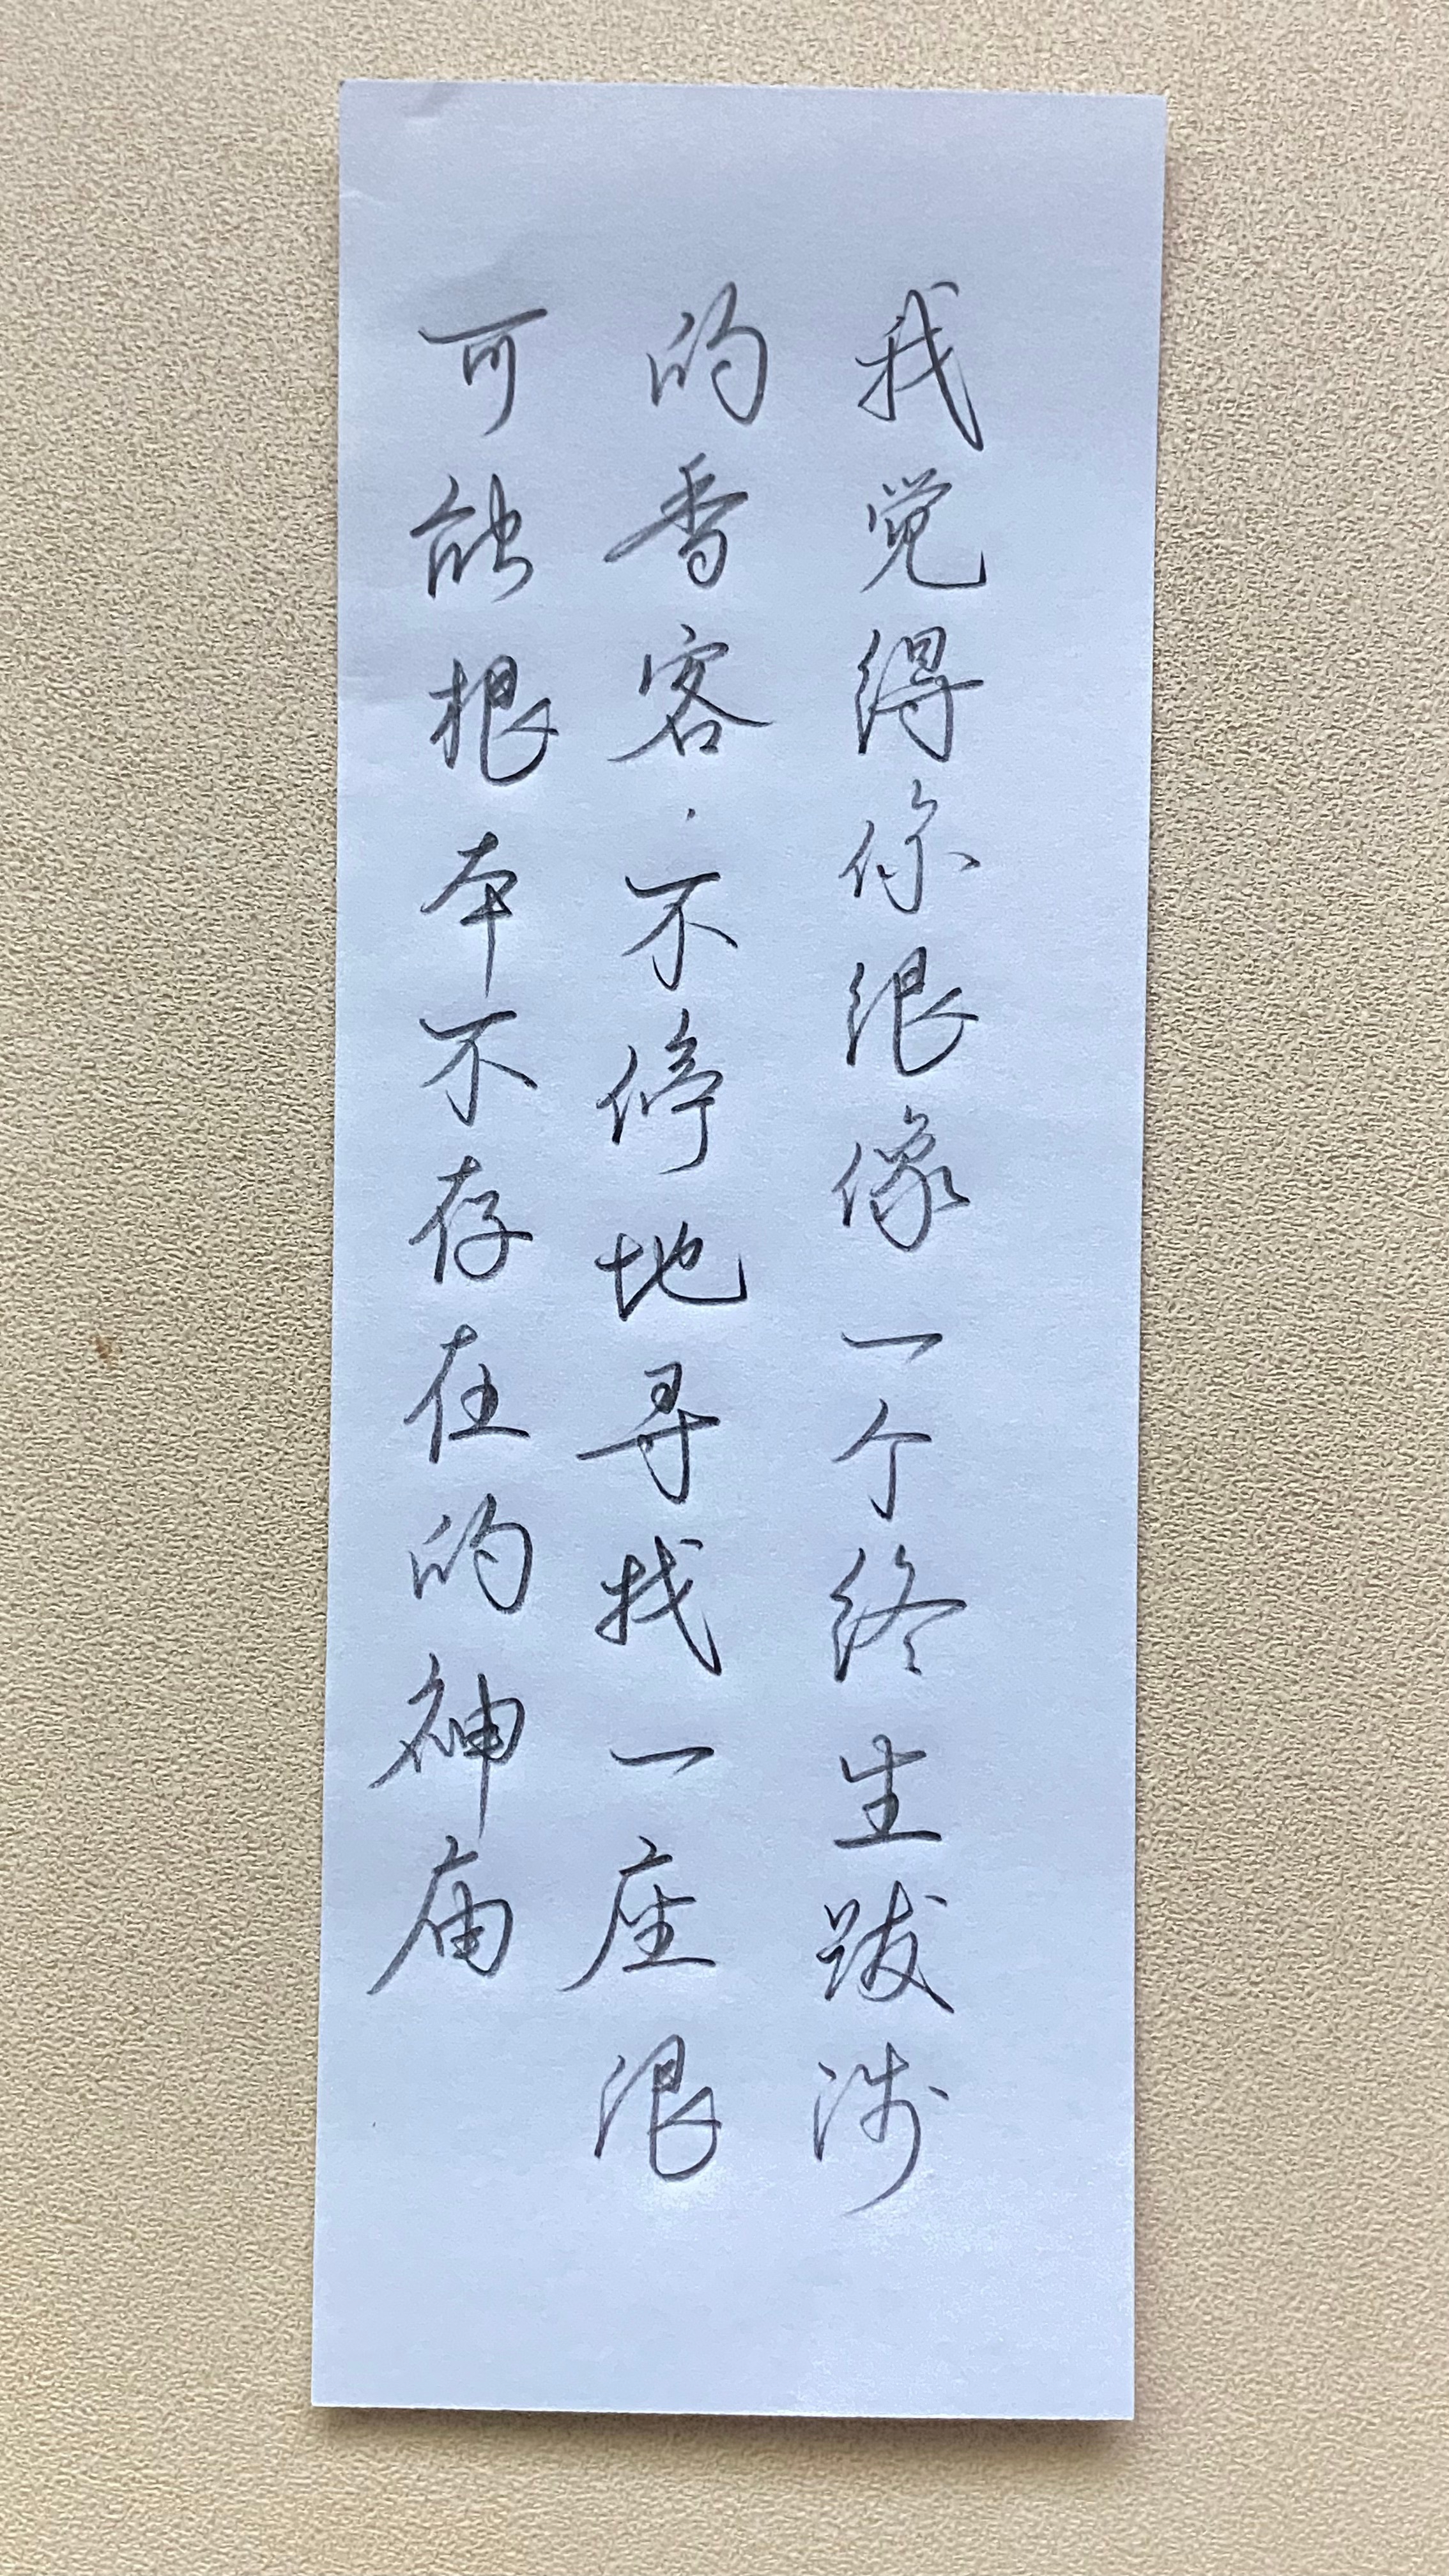 我觉得你很像一个终生跋涉
的香客.不停地寻找一座很
可能根本不存在的神庙